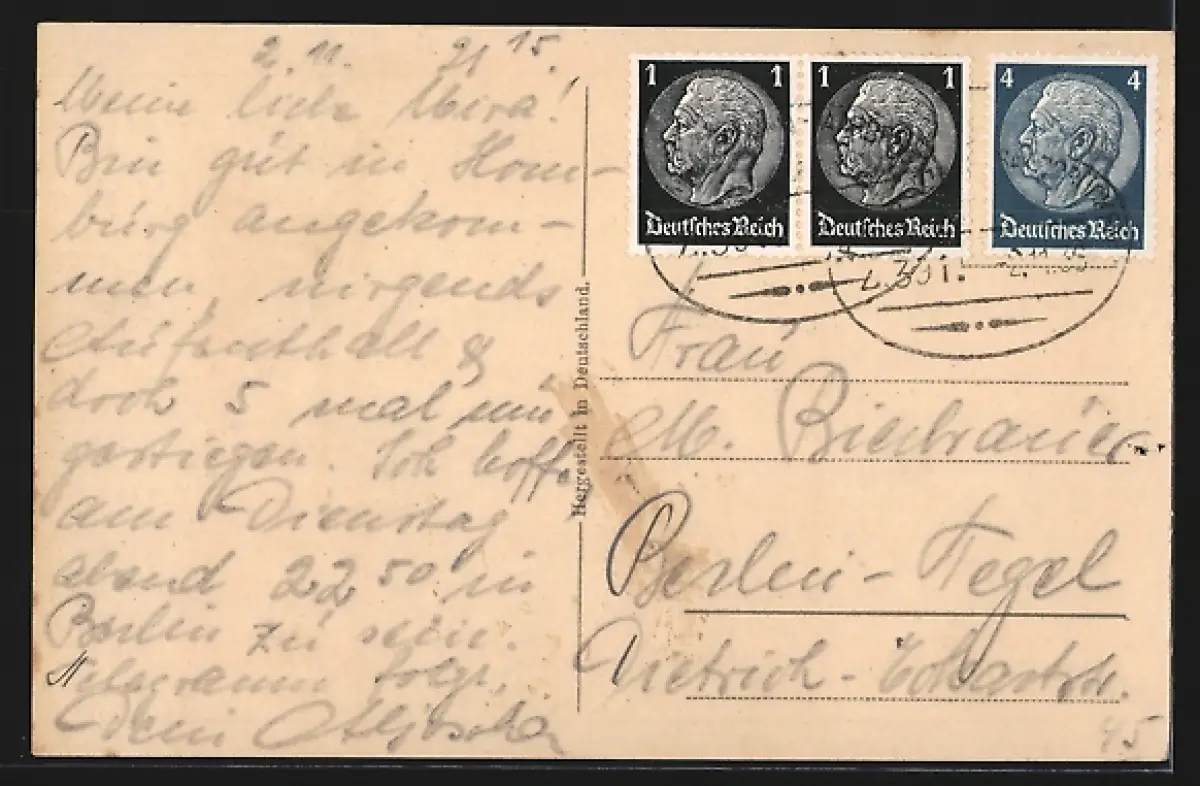 2. 11. 21 15.
Meine liebe Mira!
Bin gut in Hom-
burg angekom-
men, nirgends
Aufenthalt &
doch 5 mal um
gestiegen. Ich hoffe
am Dienstag
abend 22 50 in
Berlin zu sein.
Telegramm folgt.
Dein
Hergestellt in Deutschland.
1 1
Deutsches Reich
1 1
Deutsches Reich
4 4
Deutsches Reich
Z. 351.
Frau
M. Bierbrauer
Berlin - Tegel
Dietrich - Eckartstr.
45